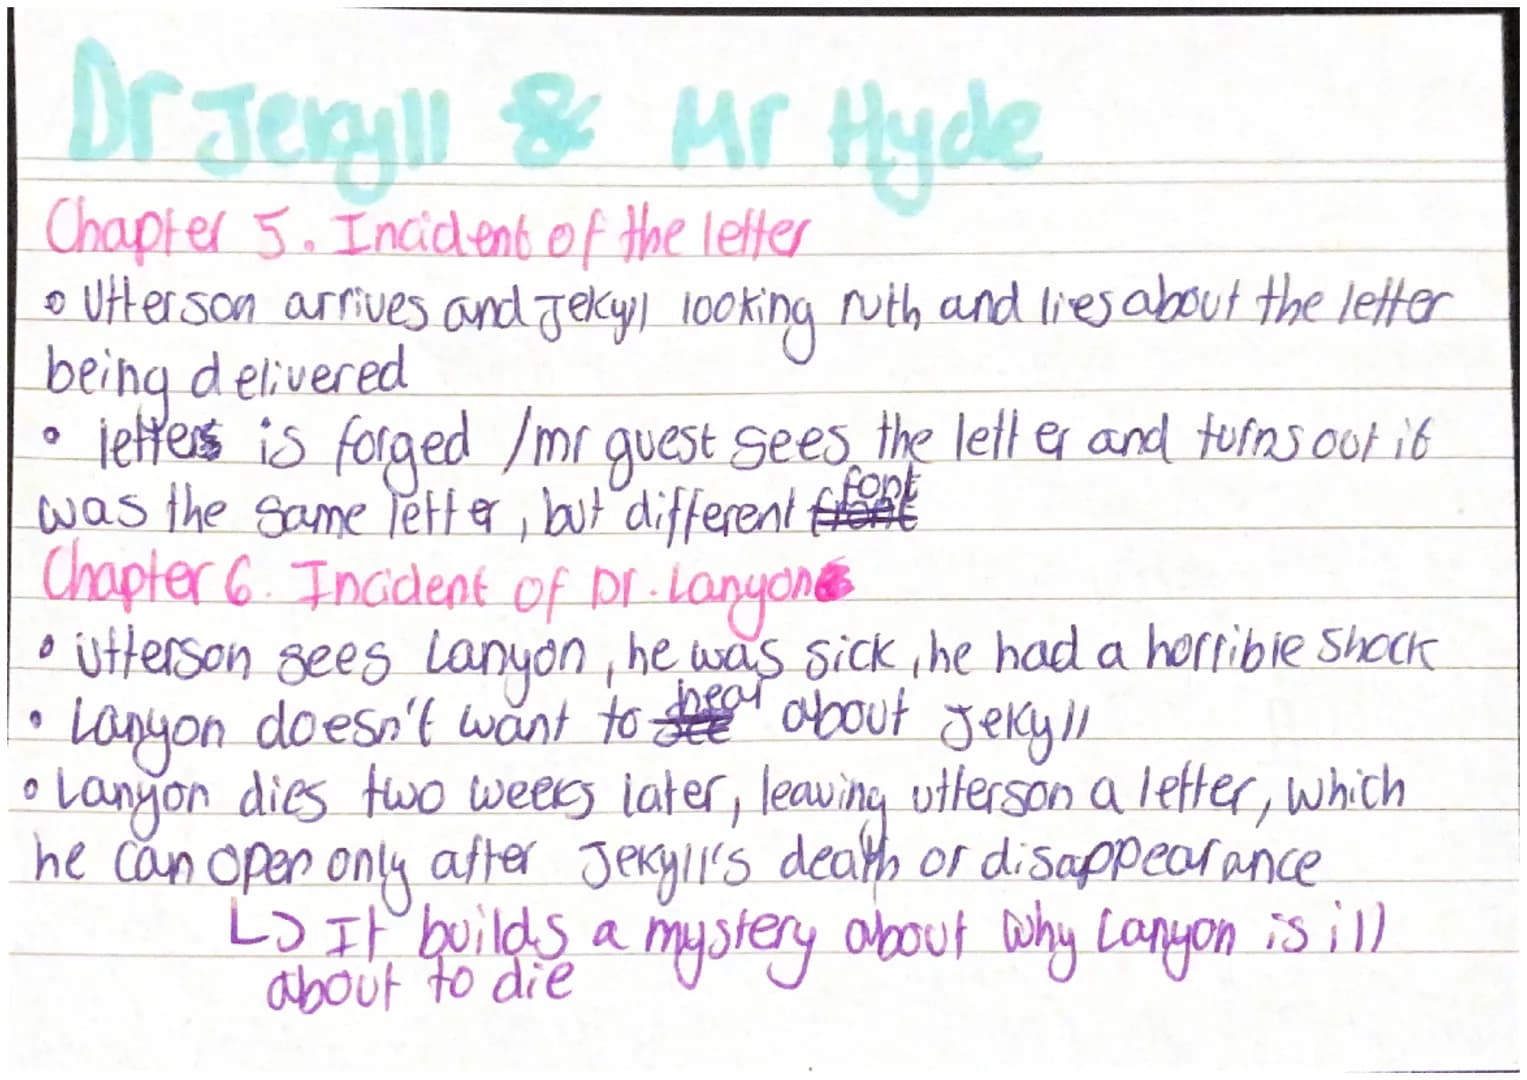 Dr Jekyll & Mr Hyde
Chapter 5. Incident of the letter
Utterson arrives and Jekyll looking ruth and lies about the letter
being delivered
letters is forged / mr guest sees the letter and turns out it
was the same letter, but different font
Chapter 6. Incident of Dr. Lanyon
Utterson sees Lanyon, he was sick, he had a horrible shock
Lanyon doesn't want to hear about Jekyll
Lanyon dies two weeks later, leaving utterson a letter, which
he can open only after Jekyll's death or disappearance
↳ It builds a mystery about why Lanyon is ill
about to die